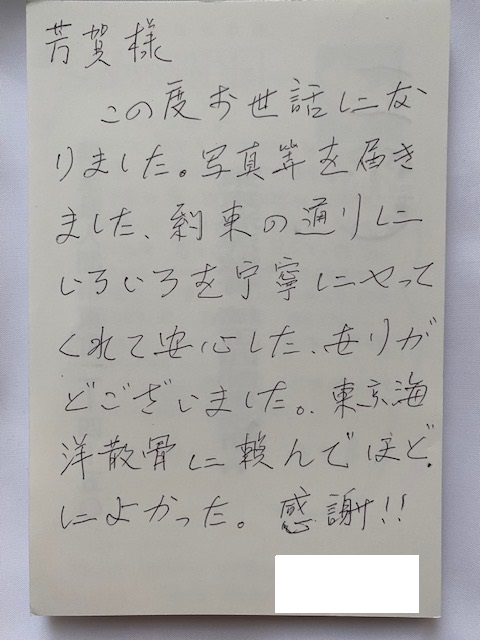 芳賀様
この度お世話にな
りました。写真等を届き
ました、約束の通りに
いろいろを宁寧にやって
くれて安心した、ありが
どございました。東京海
洋散骨に頼んでほど
によかった。 感謝!!